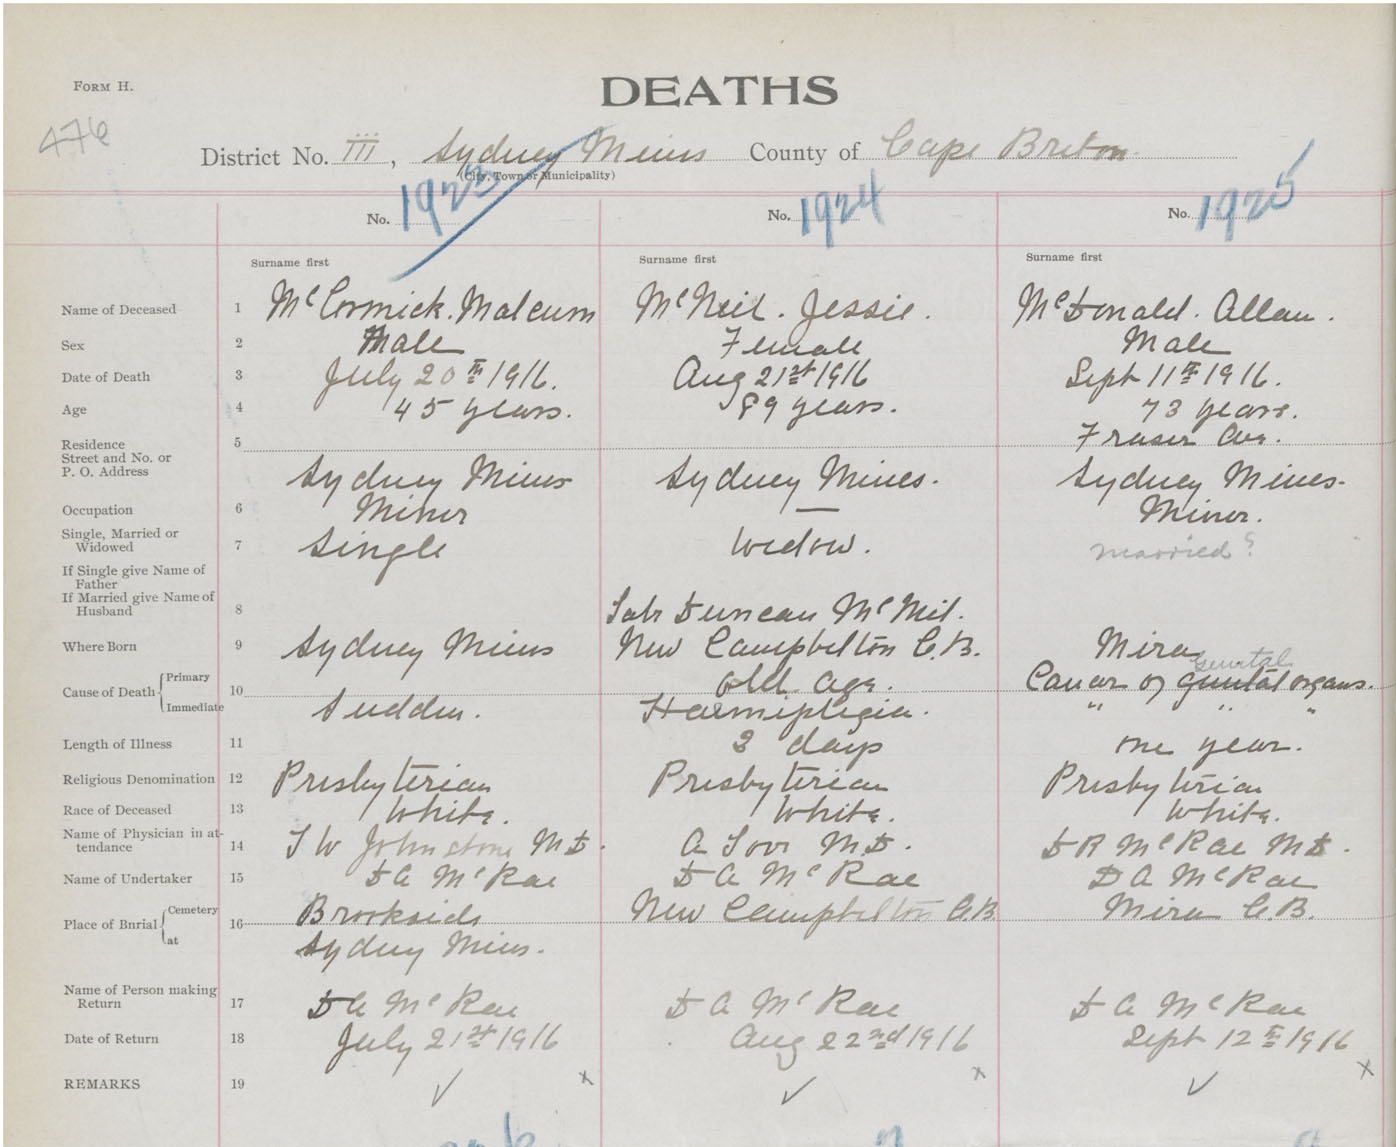 FORM H.
DEATHS
476
District No. III, Sydney Mines County of Cape Breton
(City, Town or Municipality)
No. 1923 No. 1924 No. 1925
Surname first Surname first Surname first
Name of Deceased 1 McCormick. Malcum McNeil. Jessie. McDonald. Allan.
Sex 2 Male Female Male
Date of Death 3 July 20th 1916. Aug 21st 1916 Sept 11th 1916.
Age 4 45 years. 89 years. 73 years.
Residence 5 Fraser Ave.
Street and No. or
P. O. Address Sydney Mines Sydney Mines. Sydney Mines.
Occupation 6 Miner — Miner.
Single, Married or
Widowed 7 Single Widow. married?
If Single give Name of
Father
If Married give Name of
Husband 8 Late Duncan McNeil.
Where Born 9 Sydney Mines New Campbelton C.B. Mira
genital
Cause of Death Primary 10 Old age. Cancer of genital organs.
Immediate Sudden. Haemiplegia. " " "
Length of Illness 11 3 days one year.
Religious Denomination 12 Presbyterian Presbyterian Presbyterian
Race of Deceased 13 White. White. White.
Name of Physician in at-
tendance 14 T W Johnstone MD. A MD. D R McRae MD.
Name of Undertaker 15 D A McRae D A McRae D A McRae
Place of Bnrial Cemetery 16 Brookside New Campbelton C.B. Mira C.B.
at Sydney Mines.
Name of Person making
Return 17 D A McRae D A McRae D A McRae
Date of Return 18 July 21st 1916 Aug 22nd 1916 Sept 12th 1916
REMARKS 19 ✓ x ✓ x ✓ x